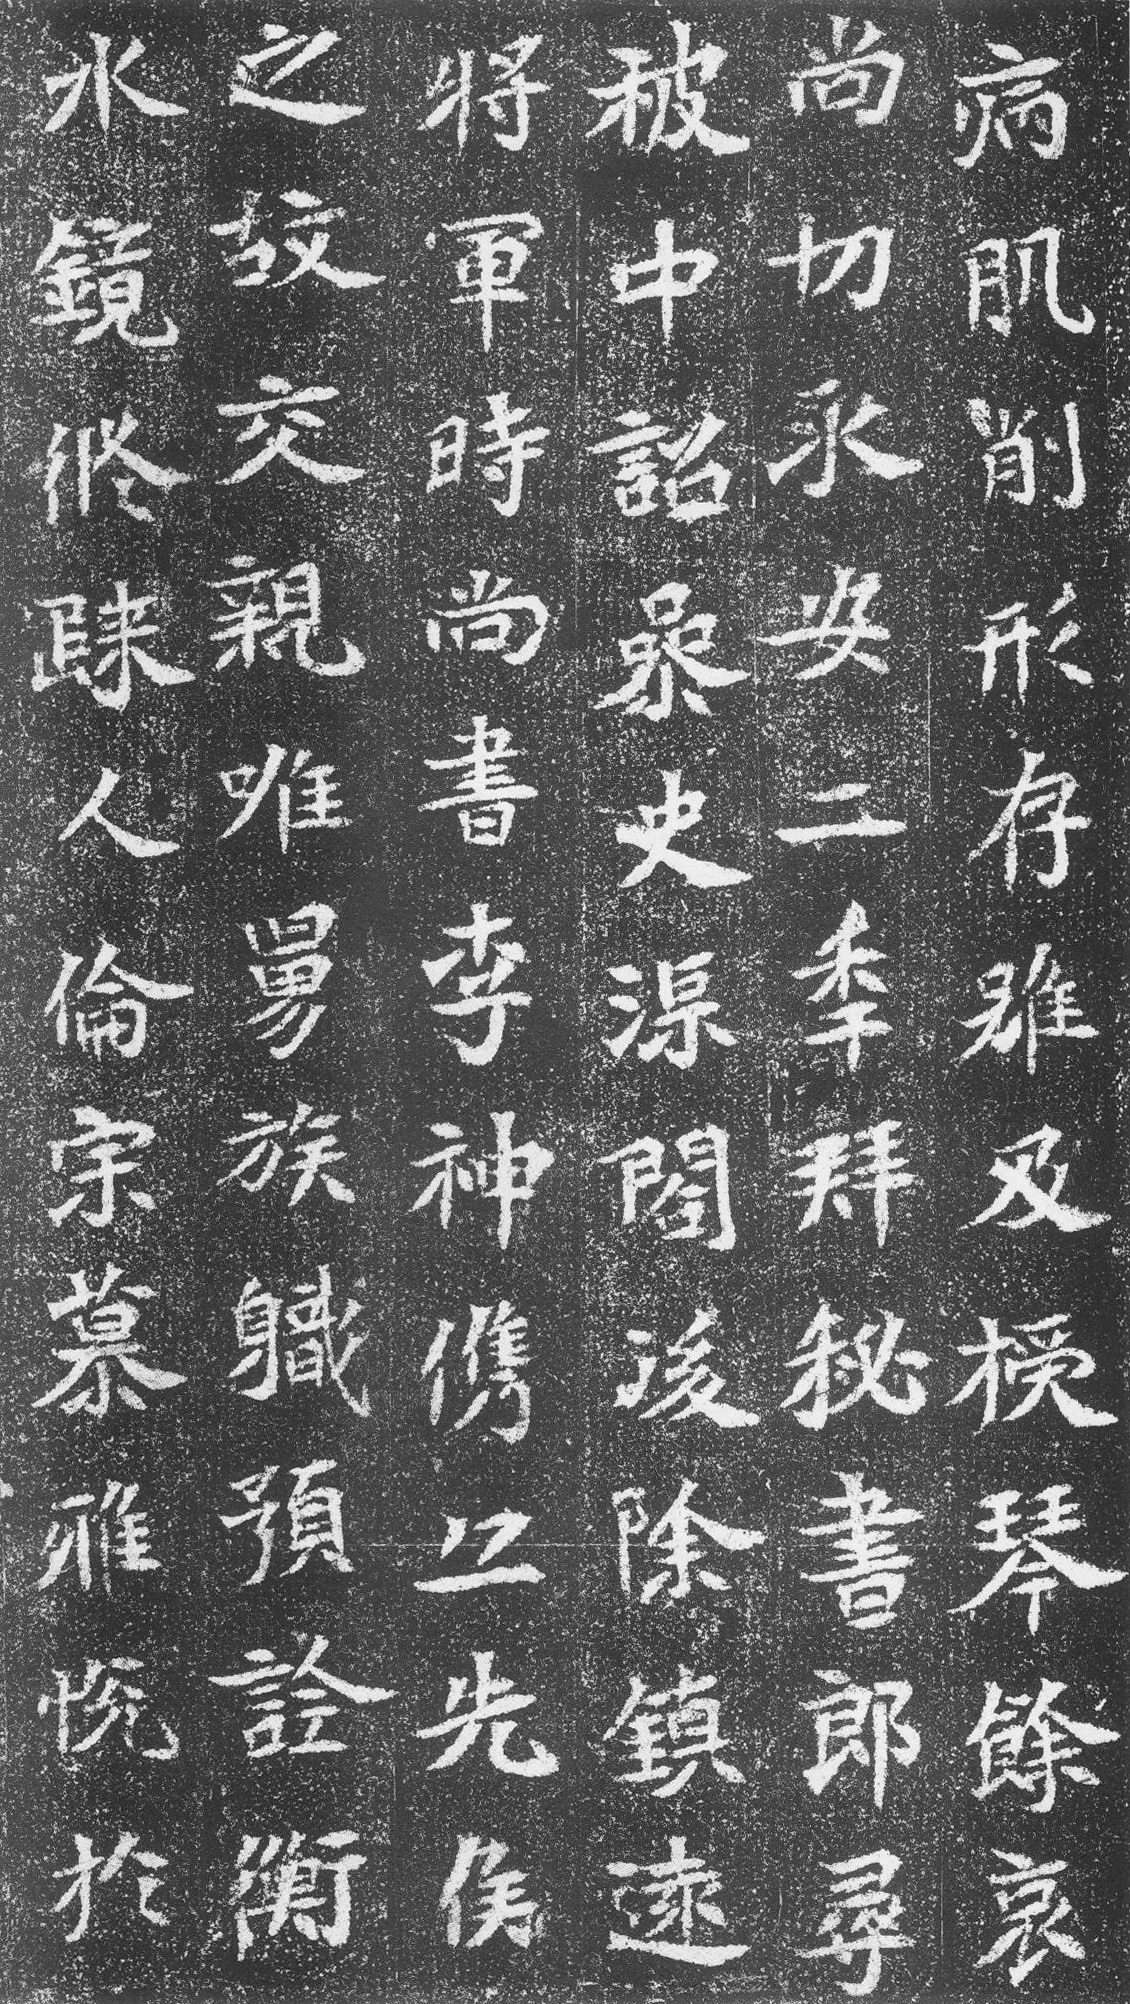 病肌削形存雖及禫琴餘哀
尚切永安二秊拜秘書郎尋
被中詔參史渠閣後除鎮遠
將軍時尚書李神儁以先侯
之故交親唯舅族職預詮衡
水鏡所歸人倫宗慕雅悅於